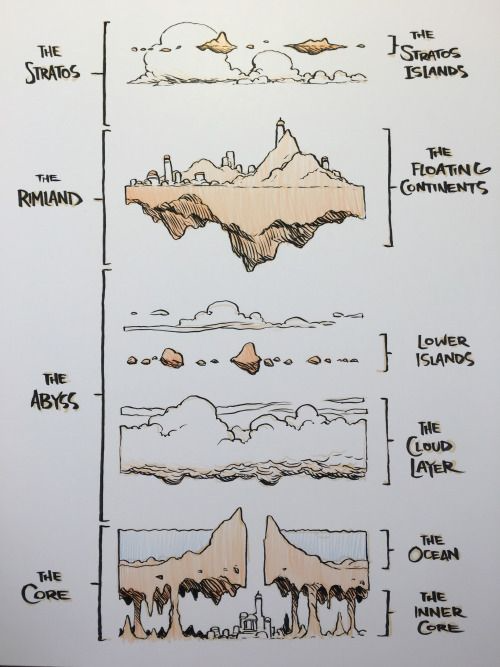 THE
STRATOS
THE
STRATOS
ISLANDS
THE
RIMLAND
THE
FLOATING
CONTINENTS
THE
ABYSS
LOWER
ISLANDS
THE
CLOUD
LAYER
THE
CORE
THE
OCEAN
THE
INNER
CORE